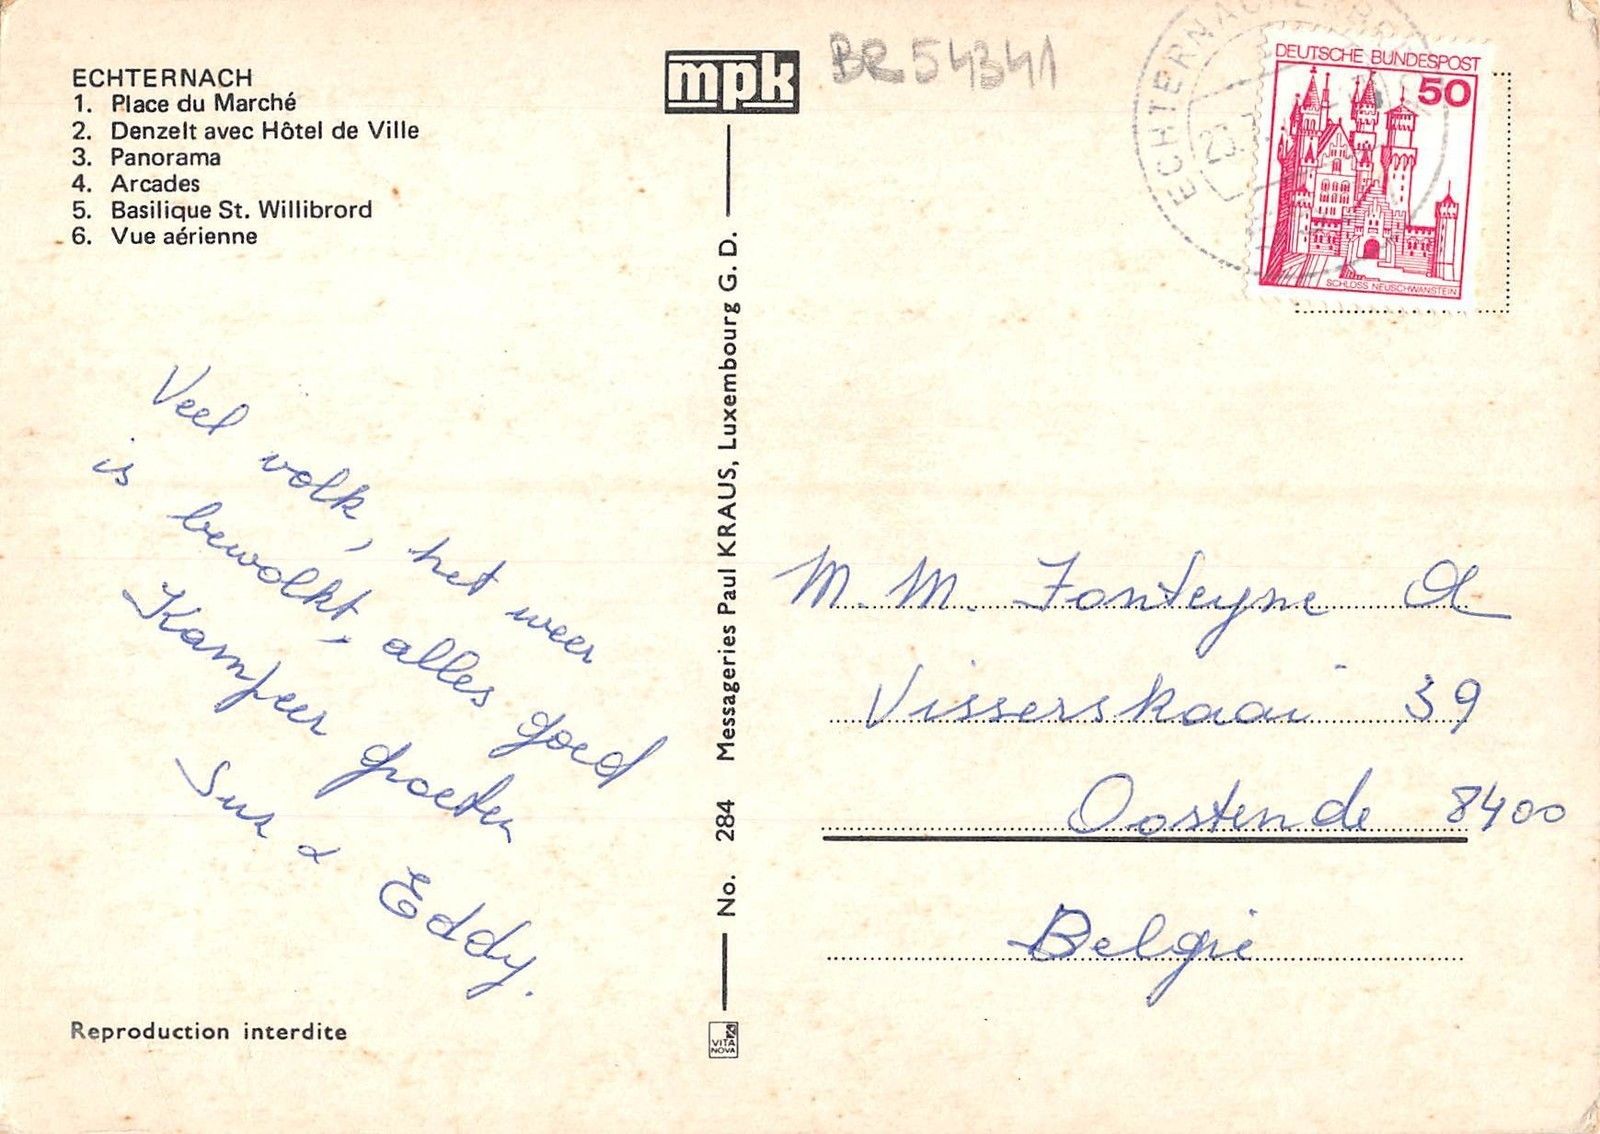 ECHTERNACH
1. Place du Marché
2. Denzelt avec Hôtel de Ville
3. Panorama
4. Arcades
5. Basilique St. Willibrord
6. Vue aérienne
mpk
BR54341
DEUTSCHE BUNDESPOST
50
SCHLOSS NEUSCHWANSTEIN
Veel volk, het weer
is bewolkt, alles goed
Kampeer groeten
Sus & Eddy.
No. 284 Messageries Paul KRAUS, Luxembourg G. D.
VITA
NOVA
M. M. Fonteyne A
Visserskaai 39
Oostende 8400
België
Reproduction interdite